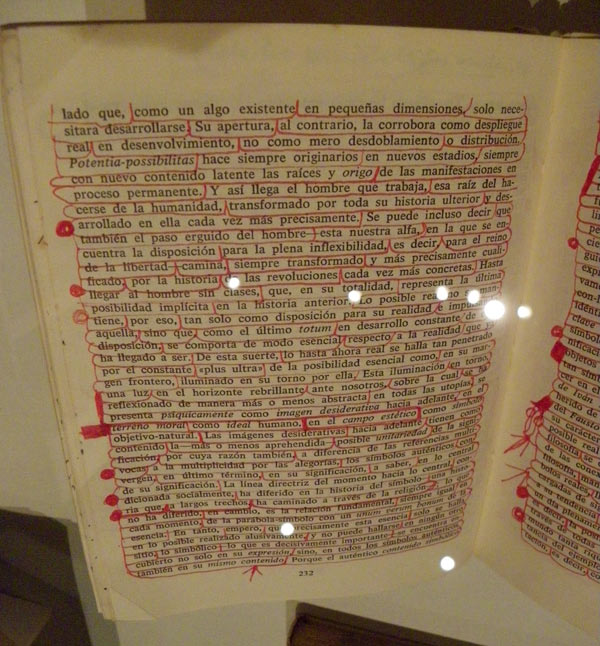 lado que, como un algo existente en pequeñas dimensiones, solo nece-
sitara desarrollarse. Su apertura, al contrario, la corrobora como despliegue
real en desenvolvimiento, no como mero desdoblamiento o distribución.
Potentia-possibilitas hace siempre originarios en nuevos estadios, siempre
con nuevo contenido latente las raíces y origo de las manifestaciones en
proceso permanente. Y así llega el hombre que trabaja, esa raíz del ha-
cerse de la humanidad, transformado por toda su historia ulterior y des-
arrollado en ella cada vez más precisamente. Se puede incluso decir que
también el paso erguido del hombre— esta nuestra alfa, en la que se en-
cuentra la disposición para la plena inflexibilidad, es decir, para el reino
de la libertad —camina, siempre transformado y más precisamente cuali-
ficado, por la historia de las revoluciones cada vez más concretas. Hasta
llegar al hombre sin clases, que, en su totalidad, representa la última
posibilidad implícita en la historia anterior. Lo posible
tiene, por eso, tan solo como disposición para su realidad e
aquella, sino que, como el último totum en desarrollo constante de
disposición, se comporta de modo esencial respecto a la realidad que
ha llegado a ser. De esta suerte, lo hasta ahora real se halla tan penetrado
por el constante «plus ultra» de la posibilidad esencial como, en su mar-
gen frontero, iluminado en su torno por ella. Esta iluminación en torno,
una luz en el horizonte rebrillante ante nosotros, sobre la cual se ha
reflexionado de manera más o menos abstracta en todas las utopías, se
presenta psíquicamente como imagen desiderativa hacia adelante, en el
terreno moral como ideal humano, en el campo estético como símbolo
objetivo-natural. Las imágenes desiderativas hacia adelante tienen como
contenido la—más o menos aprehendida— posible unitariedad de la signi-
ficación, por cuya razón también, a diferencia de las referencias equí-
vocas a la multiplicidad por las alegorías, los símbolos auténticos con-
vergen, en último término, en su significación, a saber, en lo central
de su significación. La línea directriz del momento hacia lo central, con-
dicionada socialmente, ha diferido en la historia del símbolo
ria que a largos trechos ha caminado a través de la religión
no ha diferido, en cambio, es la relación fundamental, siempre igual
cada momento, de la parábola-símbolo con un unum verum
esencia. En tanto, empero, que precisamente esta esencia solo se
en lo posible realizado alusivamente, y no puede hallarse en ningún otro
sitio, lo simbólico lo que es decisivamente importante se
cubierto no solo en su expresión, sino, en todos los símbolos auténticos,
también en su mismo contenido. Porque el auténtico contenido simbólico
232